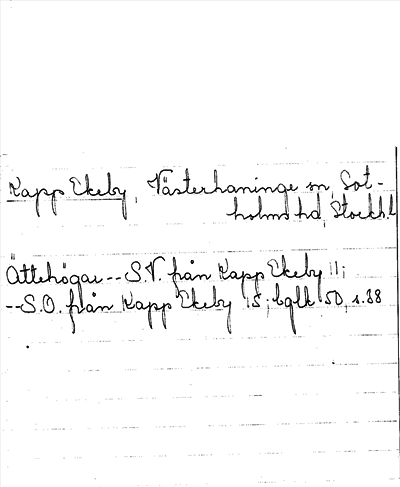 Kapp Ekeby, Västerhaninge sn, Sot-
holms hd, Stockh.l
Ättehögar -- S.V. från Kapp Ekeby 11;
-- S.O. från Kapp Ekeby 15; bglk 50, s.38